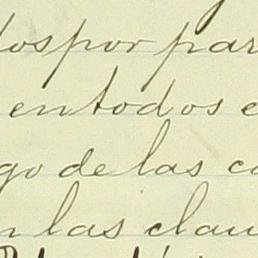 dos por par
en todos e
go de las c
n las clau